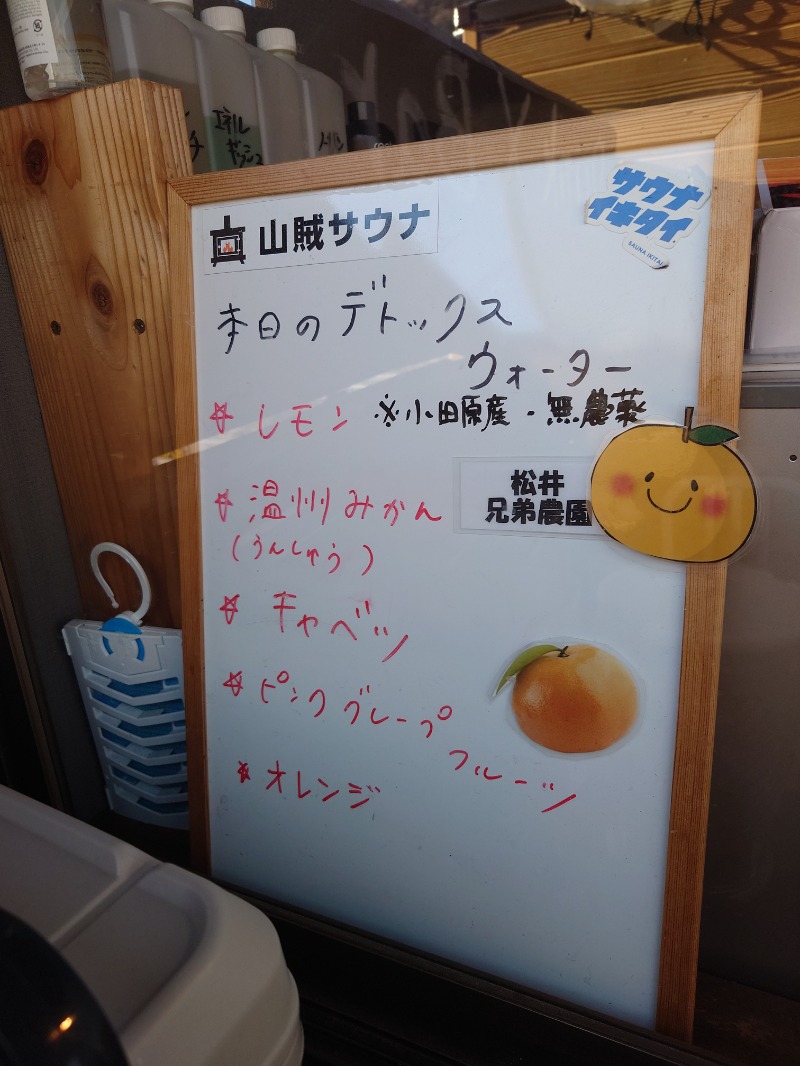 エネル
ギッシュ
山賊サウナ
サウナ
イキタイ
SAUNA IKITAI
本日のデトックス
ウォーター
☆ レモン ※小田原産・無農薬
☆ 温州みかん
(うんしゅう)
松井
兄弟農園
☆ キャベツ
☆ ピンクグレープ
フルーツ
☆ オレンジ